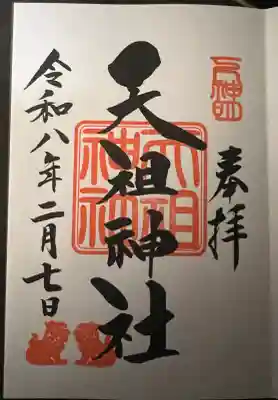 奉拝
天祖神社
天祖神社
令和八年二月七日